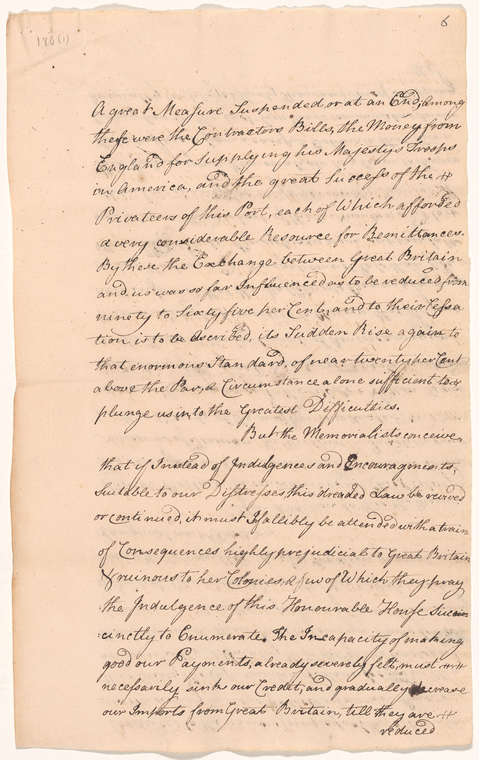 6
186(1)
A great Measure Suspended or at an End, among
these were the Contractors Bills, the Money from
England for Supplying his Majestys Troops
in America, and the great Success of the
Privateers of this Port, each of Which afforded
a very considerable Resource for Remittances.
By these the Exchange between Great Britain
and us was so far Influenced as to be reduced from
ninety to Sixty five per Cent, and to their Cessa
tion is to be ascribed, its Sudden Rise again to
that enormous Standard, of near twenty per Cent
above the Par, a Circumstance alone sufficient to
plunge us into the Greatest Difficulties.
But the Memorialists conceive,
that if Instead of Indulgences and Encouragments,
Suitable to our Distresses, this dreaded Law be revived
or continued, it must Ifallibly be attended with a train
of Consequences highly prejudicial to Great Britain
& ruinous to her Colonies. A few of Which they pray
the Indulgence of this Honourable House Succin
=cinctly to Enumerate. The Incapacity of making
good our Payments, already severely felt, must
necessarily sink our Credit, and gradually decrease
our Imports from Great Britain, till they are
reduced